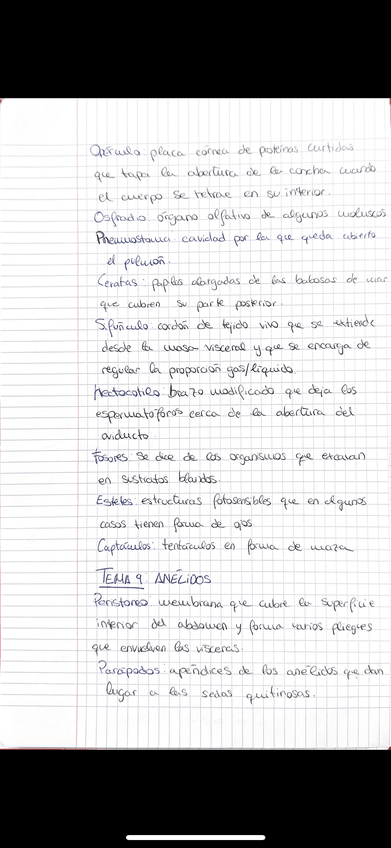 Opérculo placa córnea de proteínas curtidas
que tapa la abertura de la concha cuando
el cuerpo se retrae en su interior.
Osfradio órgano olfativo de algunos moluscos
Pneumostoma cavidad por la que queda abierto
el pulmón.
Ceratas: papilas alargadas de las babosas de mar
que cubren su parte posterior.
Sifúnculo cordón de tejido vivo que se extiende
desde la masa visceral y que se encarga de
regular la proporción gas/líquido.
Hectocotilo brazo modificado que deja los
espermatóforos cerca de la abertura del
oviducto
Fosores: se dice de los organismos que excavan
en sustratos blandos.
Estetes: estructuras fotosensibles que en algunos
casos tienen forma de ojos
Captáculos: tentáculos en forma de maza
TEMA 9 ANÉLIDOS
membrana que cubre la superficie
interior del abdomen y forma varios pliegues
que envuelven las vísceras.
Parápodos: apéndices de los anélidos que dan
lugar a las sedas quitinosas.